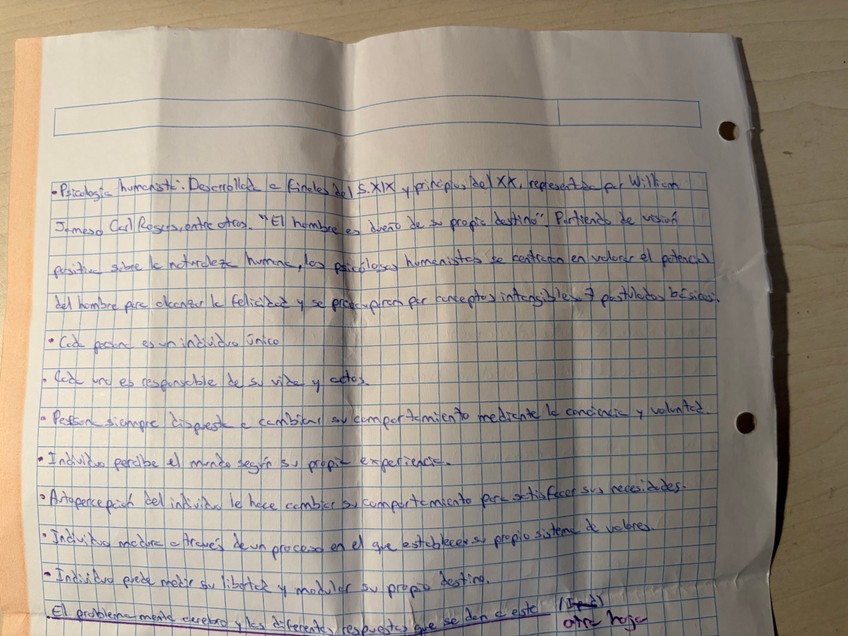 • Psicología humanista: Desarrollada a finales del S.XIX y principios del XX, representada por William
James o Carl Rogers, entre otros. "El hombre es dueño de su propio destino". Partiendo de visión
positiva sobre la naturaleza humana, los psicólogos humanistas se centraron en valorar el potencial
del hombre para alcanzar la felicidad y se preocuparon por conceptos intangibles. 7 postulados básicos:
• Cada persona es un individuo único
• Cada uno es responsable de su vida y actos.
• Persona siempre dispuesta a cambiar su comportamiento mediante la conciencia y voluntad
• Individuo percibe el mundo según su propia experiencia.
• Autopercepción del individuo le hace cambiar su comportamiento para satisfacer sus necesidades.
• Individuo madura a través de un proceso en el que establecer su propio sistema de valores.
• Individuo puede medir su libertad y modular su propio destino.
• El problema mente cerebro y las diferentes respuestas que se dan a este
otra hoja